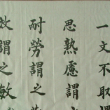 一文不
思熟慮謂
耐勞謂之
故謂之